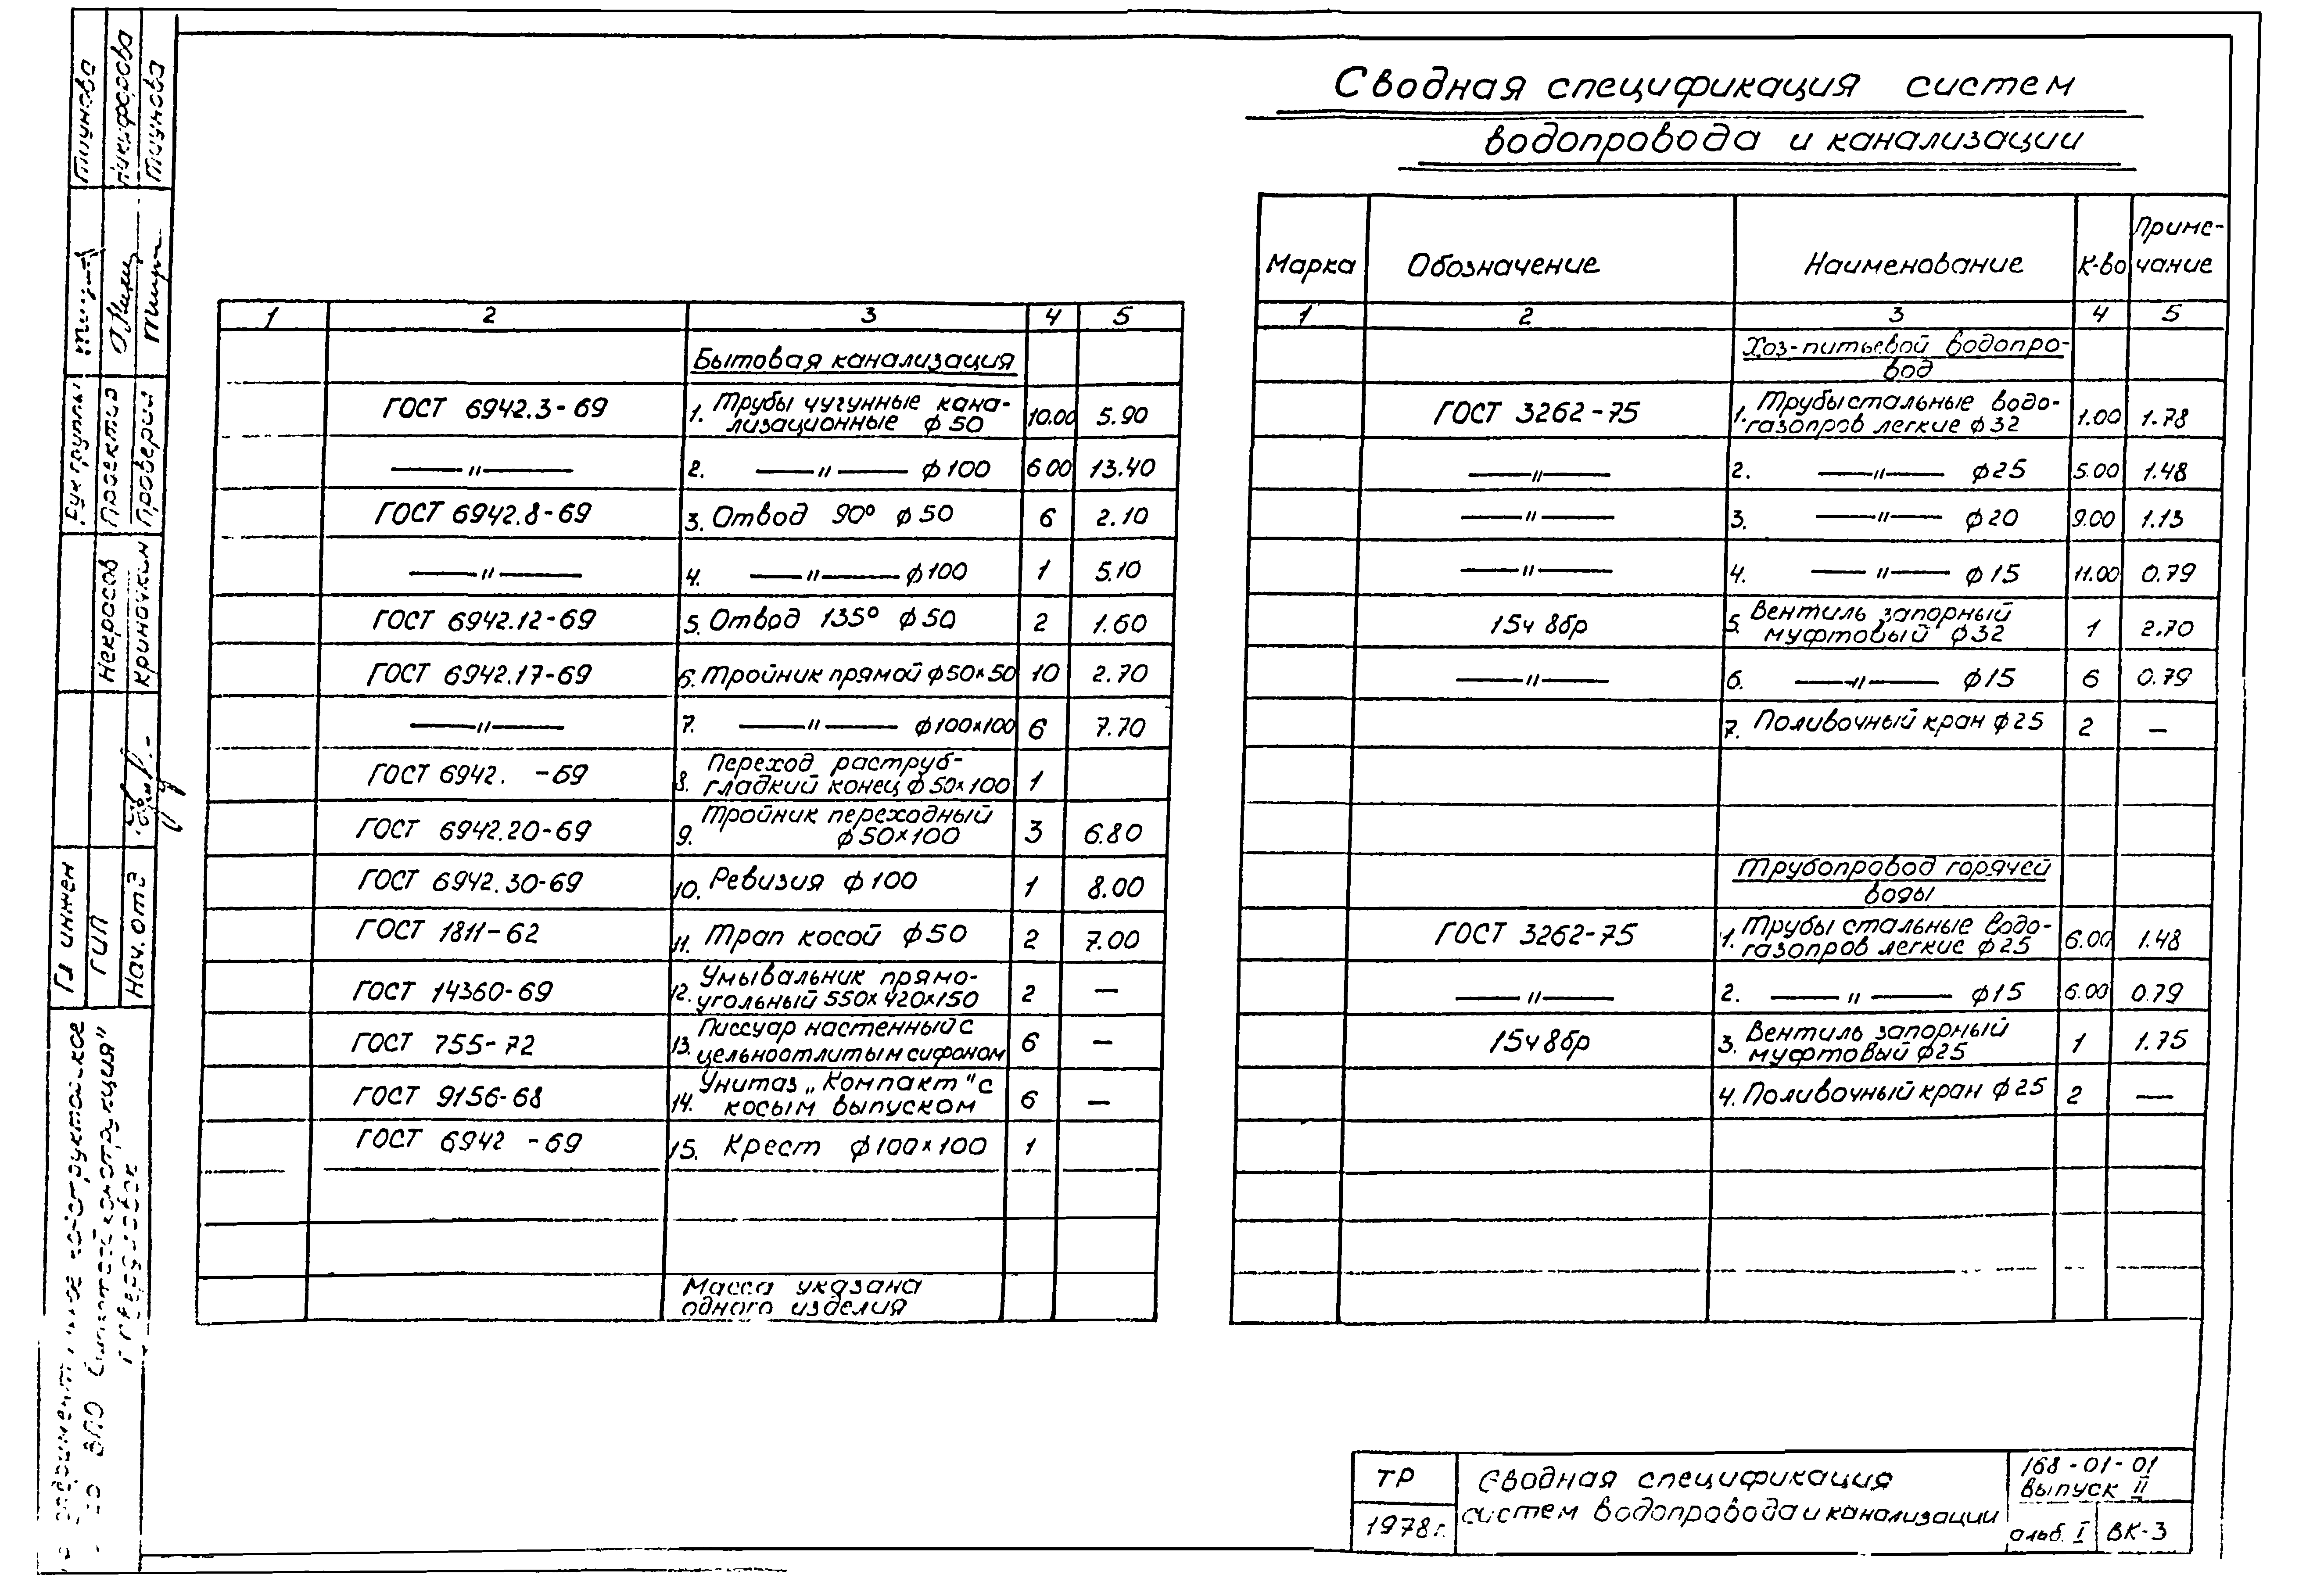 Сводная спецификация систем
водопровода и канализации
Марка Обозначение Наименование К-во Приме-
чание
1 2 3 4 5
Хоз-питьевой водопро-
вод
ГОСТ 3262-75 1. Трубы стальные водо-
газопров легкие ф32 1.00 1.78
—〃— 2. —〃— ф25 5.00 1.48
—〃— 3. —〃— ф20 9.00 1.13
—〃— 4. —〃— ф15 11.00 0.79
15ч 8бр 5. Вентиль запорный
муфтовый ф32 1 2.70
—〃— 6. —〃— ф15 6 0.79
7. Поливочный кран ф25 2 —
Трубопровод горячей
воды
ГОСТ 3262-75 1. Трубы стальные водо-
газопров легкие ф25 6.00 1.48
—〃— 2. —〃— ф15 6.00 0.79
15ч 8бр 3. Вентиль запорный
муфтовый ф25 1 1.75
4. Поливочный кран ф25 2 —
1 2 3 4 5
Бытовая канализация
ГОСТ 6942.3-69 1. Трубы чугунные кана-
лизационные ф50 10.00 5.90
—〃— 2. —〃— ф100 6.00 13.40
ГОСТ 6942.8-69 3. Отвод 90° ф50 6 2.10
—〃— 4. —〃— ф100 1 5.10
ГОСТ 6942.12-69 5. Отвод 135° ф50 2 1.60
ГОСТ 6942.17-69 6. Тройник прямой ф50×50 10 2.70
—〃— 7. —〃— ф100×100 6 7.70
ГОСТ 6942. -69 8. Переход раструб-
гладкий конец ф50×100 1
ГОСТ 6942.20-69 9. Тройник переходный
ф50×100 3 6.80
ГОСТ 6942.30-69 10. Ревизия ф100 1 8.00
ГОСТ 1811-62 11. Трап косой ф50 2 7.00
ГОСТ 14360-69 12. Умывальник прямо-
угольный 550×420×150 2 —
ГОСТ 755-72 13. Писсуар настенный с
цельноотлитым сифоном 6 —
ГОСТ 9156-68 14. Унитаз „Компакт" с
косым выпуском 6 —
ГОСТ 6942 -69 15. Крест ф100×100 1
Масса указана
одного изделия
ТР
1978г.
Сводная спецификация
систем водопровода и канализации
168-01-01
выпуск II
альб. I ВК-3
Гл инжен
ГИП Некрасов
Нач. отд Криначкин
Рук группы Тиунова
Проектир Никифорова
Проверил Тиунова